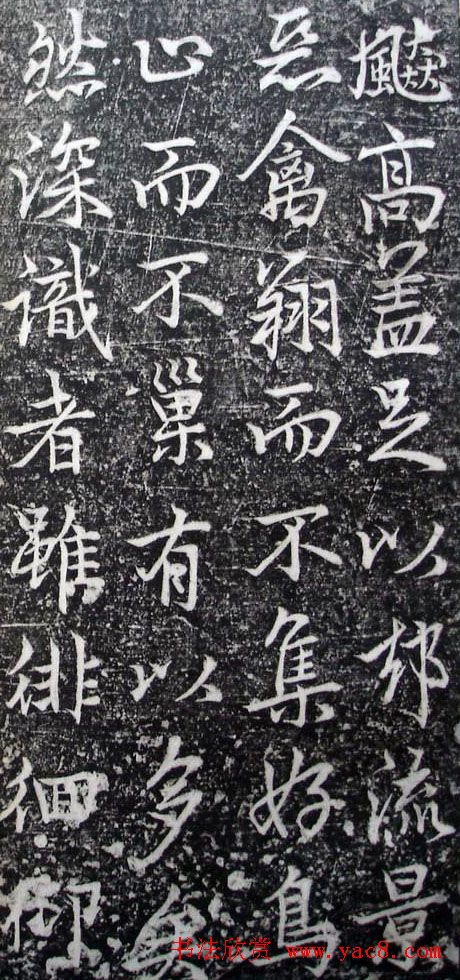 飇高盖足以却流景
惡禽翔而不集好鳥
止而不巢有以多矣
然深識者雖徘徊
书法欣赏 www.yac8.com